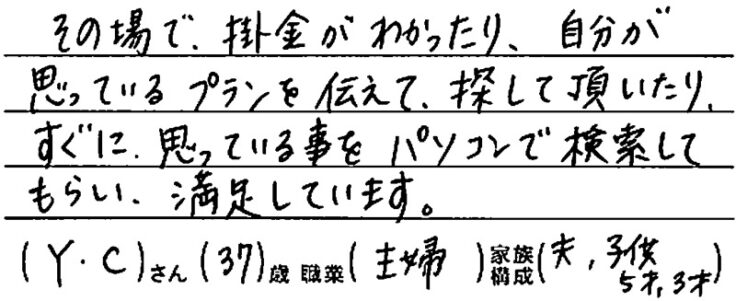 その場で、掛金がわかったり、自分が
思っているプランを伝えて、探して頂いたり、
すぐに、思っている事をパソコンで検索して
もらい、満足しています。
(Y・C)さん(37)歳 職業(主婦)家族構成(夫、子供 5才、3才)